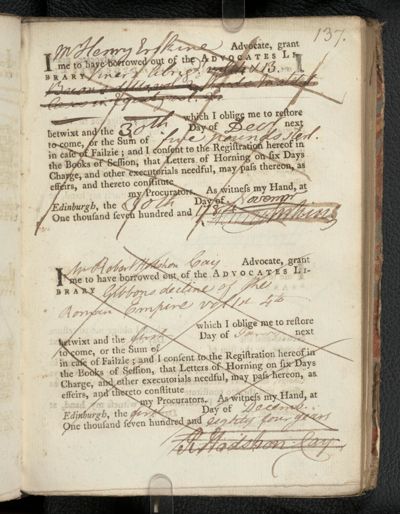 137.
I Mr Henry Erskine Advocate, grant
me to have borrowed out of the ADVOCATES LI-
BRARY Viners Abrigt vol 4 & 13.
which I oblige me to restore
betwixt and the 30th Day of Decr next
to come, or the Sum of five pounds Sterl.
in case of Failzie; and I consent to the Registration hereof in
the Books of Session, that Letters of Horning on six Days
Charge, and other executorials needful, may pass hereon, as
effeirs, and thereto constitute
my Procurators. As witness my Hand, at
Edinburgh, the 30th Day of Novemr
One thousand seven hundred and
I Mr Robert Hodshon Cay Advocate, grant
me to have borrowed out of the ADVOCATES LI-
BRARY Gibbons decline of the
Roman Empire vol 4th
which I oblige me to restore
betwixt and the first Day of next
to come, or the Sum of
in case of Failzie; and I consent to the Registration hereof in
the Books of Session, that Letters of Horning on six Days
Charge, and other executorials needful, may pass hereon, as
effeirs, and thereto constitute
my Procurators. As witness my Hand, at
Edinburgh, the first Day of Decemr
One thousand seven hundred and eighty four years
R Hodshon Cay